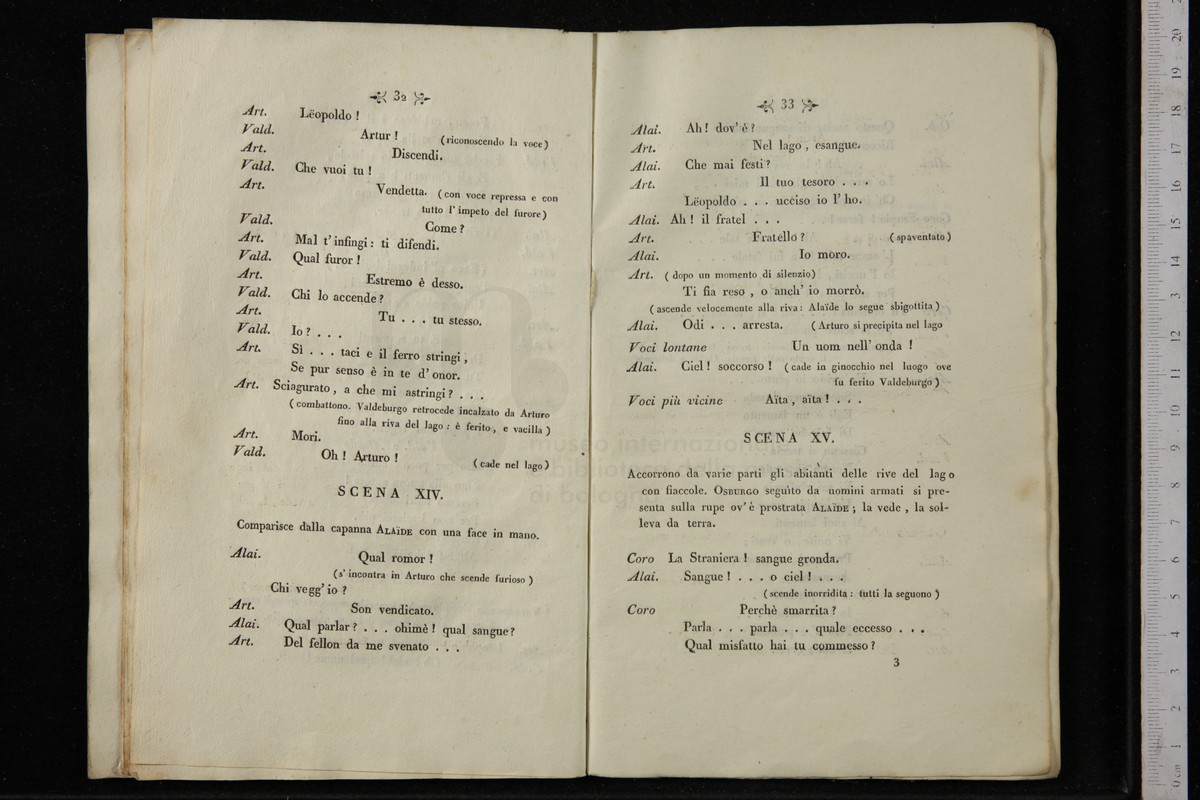 32
Art. Lëopoldo !
Vald. Artur ! (riconoscendo la voce)
Art. Discendi.
Vald. Che vuoi tu !
Art. Vendetta. (con voce repressa e con
tutto l' impeto del furore)
Vald. Come ?
Art. Mal t' infingi : ti difendi.
Vald. Qual furor !
Art. Estremo è desso.
Vald. Chi lo accende ?
Art. Tu . . . tu stesso.
Vald. Io ? . . .
Art. Sì . . . taci e il ferro stringi ,
Se pur senso è in te d' onor.
Art. Sciagurato , a che mi astringi ? . . .
( combattono. Valdeburgo retrocede incalzato da Arturo
fino alla riva del lago : è ferito , e vacilla )
Art. Mori.
Vald. Oh ! Arturo ! ( cade nel lago )
SCENA XIV.
Comparisce dalla capanna ALAÏDE con una face in mano.
Alai. Qual romor !
(s' incontra in Arturo che scende furioso )
Chi vegg' io ?
Art. Son vendicato.
Alai. Qual parlar ? . . . ohimè ! qual sangue ?
Art. Del fellon da me svenato . . .
33
Alai. Ah ! dov' è ?
Art. Nel lago , esangue.
Alai. Che mai festi ?
Art. Il tuo tesoro . . .
Lëopoldo . . . ucciso io l' ho.
Alai. Ah ! il fratel . . .
Art. Fratello ? ( spaventato )
Alai. Io moro.
Art. ( dopo un momento di silenzio)
Ti fia reso , o anch' io morrò.
( ascende velocemente alla riva : Alaïde lo segue sbigottita )
Alai. Odi . . . arresta. ( Arturo si precipita nel lago
Voci lontane Un uom nell' onda !
Alai. Ciel ! soccorso ! ( cade in ginocchio nel luogo ove
fu ferito Valdeburgo )
Voci più vicine Aïta , aïta ! . . .
SCENA XV.
Accorrono da varie parti gli abitanti delle rive del lago
con fiaccole. OSBURGO seguìto da uomini armati si pre-
senta sulla rupe ov' è prostrata ALAÏDE ; la vede , la sol-
leva da terra.
Coro La Straniera ! sangue gronda.
Alai. Sangue ! . . . o ciel ! . . .
( scende inorridita : tutti la seguono )
Coro Perchè smarrita ?
Parla . . . parla . . . quale eccesso . . .
Qual misfatto hai tu commesso ?
3
museo internazionale
biblioteca
di bologna
0 cm 1 2 3 4 5 6 7 8 9 10 11 12 13 14 15 16 17 18 19 20